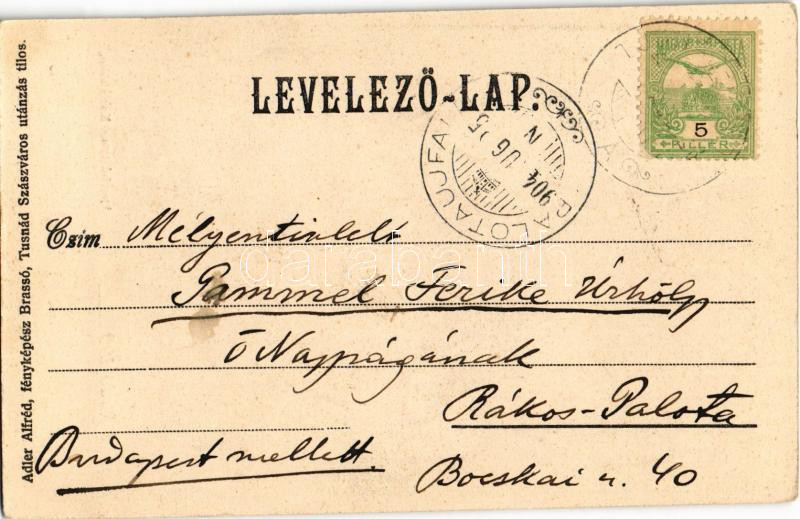 Adler Alfréd, fényképész Brassó, Tusnád Szászváros utánzás tilos.
LEVELEZŐ-LAP.
MAGYAR KIR. POSTA
5
FILLÉR
904
PALOTAUJFALU
darabanth
Czim Mélyentisztelt
Pammel Ferike Úrhölgy
ő Nagyságának
Rákos-Palota
Budapest mellett.
Bocskai u. 40